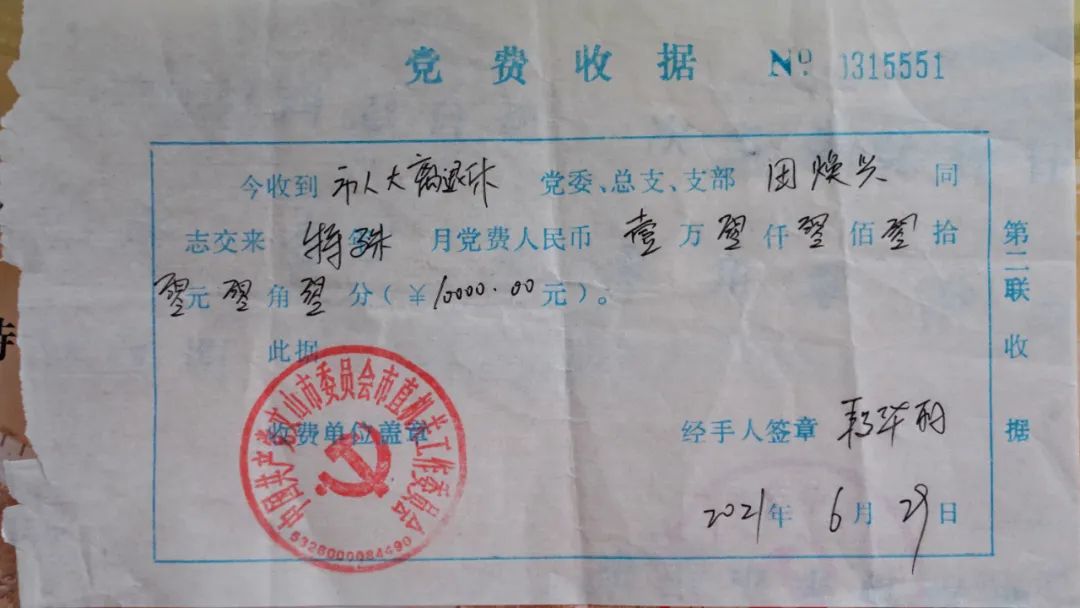 党费收据 № 0315551
今收到 市人大离退休 党委、总支、支部 田焕兴 同
志交来 特殊 月党费人民币 壹万零仟零佰零拾
零元零角零分(¥10000.00元)。
此据
收费单位盖章 经手人签章
2021年6月29日
第二联收据
中国共产党文山市委员会市直机关工作委员会
5326000084490